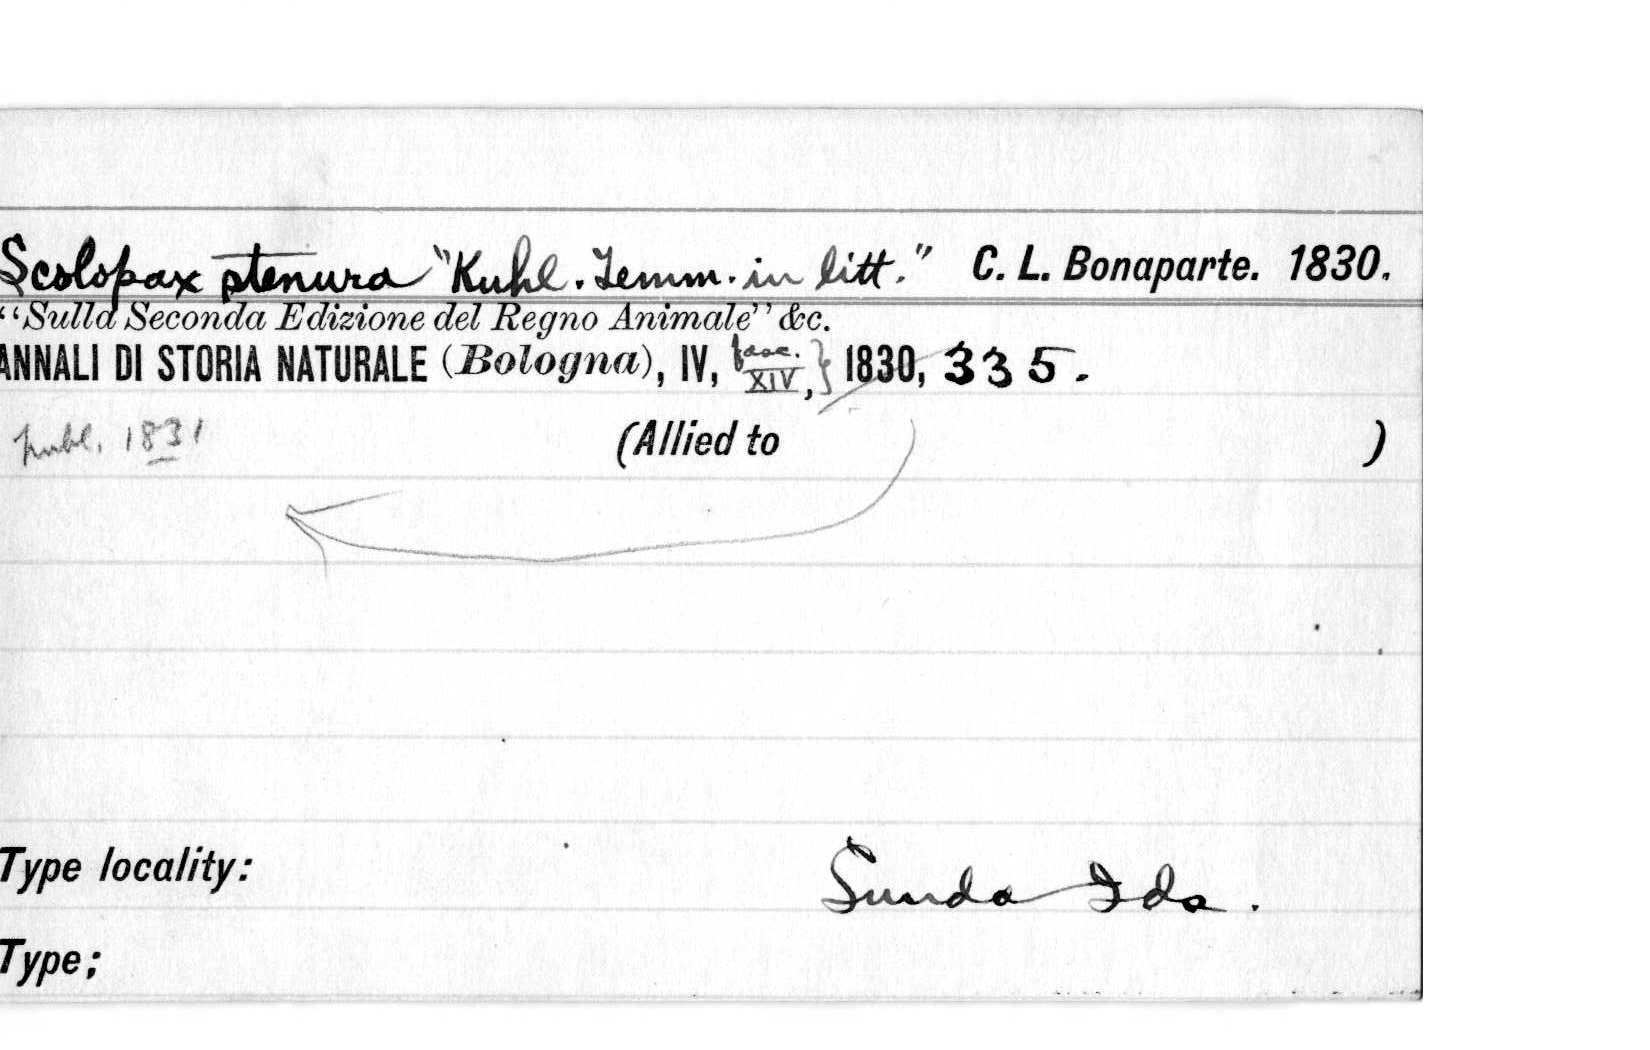 Scolopax stenura "Kuhl. Temm. in litt." C. L. Bonaparte. 1830.
"Sulla Seconda Edizione del Regno Animale" &c.
ANNALI DI STORIA NATURALE (Bologna), IV, fasc. XIV, } 1830, 335.
publ. 1831 (Allied to )
Type locality: Sunda Ids.
Type;